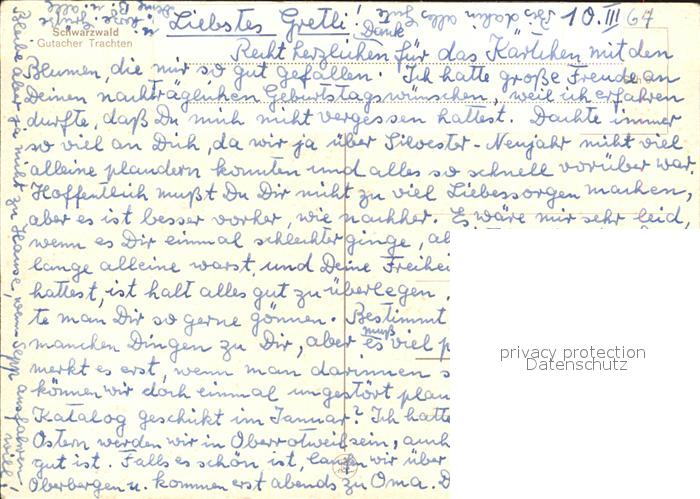 Liebstes Gretli! 10. III 64
Schwarzwald
Gutacher Trachten
Dank
Recht herzlichen für das Kärtchen, mit den
Blumen, die mir so gut gefallen. Ich hatte große Freude an
Deinen nachträglichen Geburtstagswünschen, weil ich erfahren
durfte, daß Du mich nicht vergessen hattest. Dachte immer
so viel an Dich, da wir ja über Silvester - Neujahr nicht viel
alleine plaudern konnten und alles so schnell vorüber war.
Hoffentlich mußt Du Dir nicht zu viel Liebessorgen machen,
aber es ist besser vorher, wie nachher. Es wäre mir sehr leid,
wenn es Dir einmal schlechter ginge, ab
lange alleine warst, und Deine Freihei
hattest, ist halt alles gut zu überlegen.
te man Dir so gerne gönnen. Bestimmt
muß
manchen Dingen zu Dir, aber es viel p
merkt es erst, wenn man darinnen s
können wir doch einmal ungestört plau
Katalog geschikt im Januar? Ich hatte
Ostern werden wir in Oberrotweil sein, auch
gut ist. Falls es schön ist, laufen wir über
Oberbergen u. kommen erst abends zu Oma. D
Bleibe aber ja nicht zu Hause, wenn Sepp ausfahren
will!
Bis dahin alles Gute
privacy protection
Datenschutz